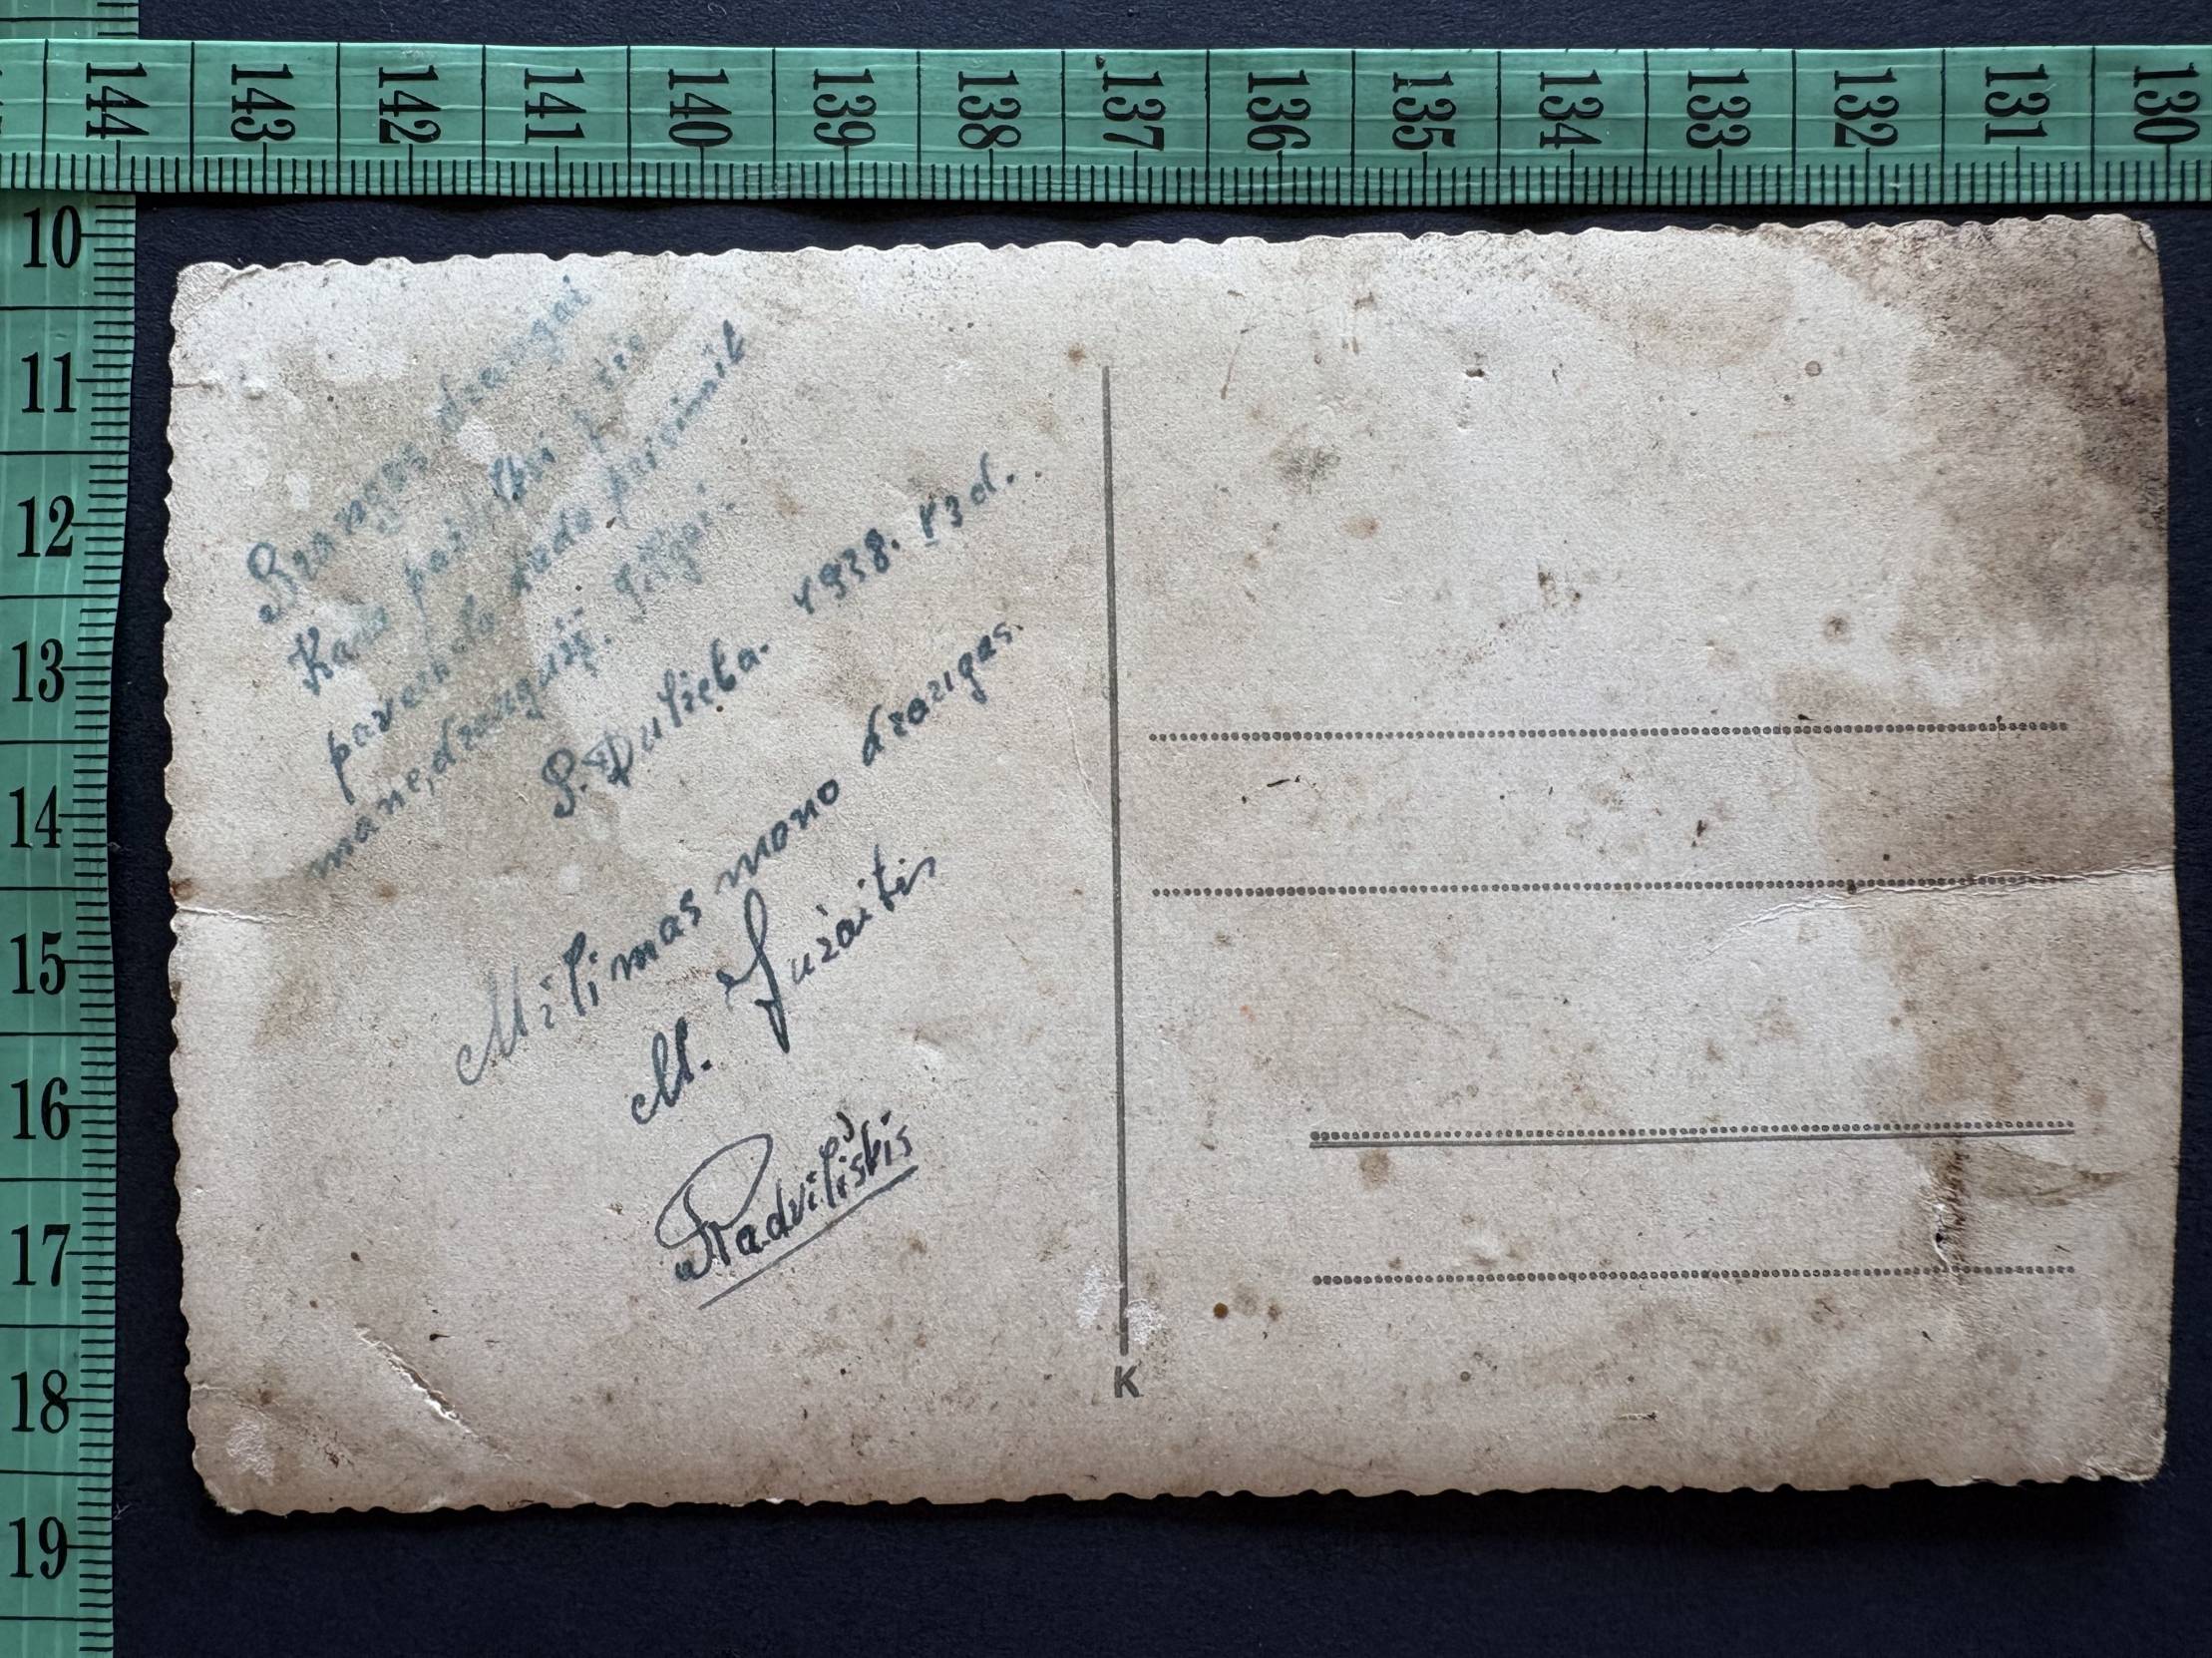 144 143 142 141 140 139 138 137 136 135 134 133 132 131 130
10
11
12
13
14
15
16
17
18
19
Brangus draugai
Kada į šio
paveikslo kada prisimik
mane, draugužį. Ilgai.
P. Dulieba. 1938. 13 d.
Milimas mono draugas.
M. Juraitis
Radviliškis
K